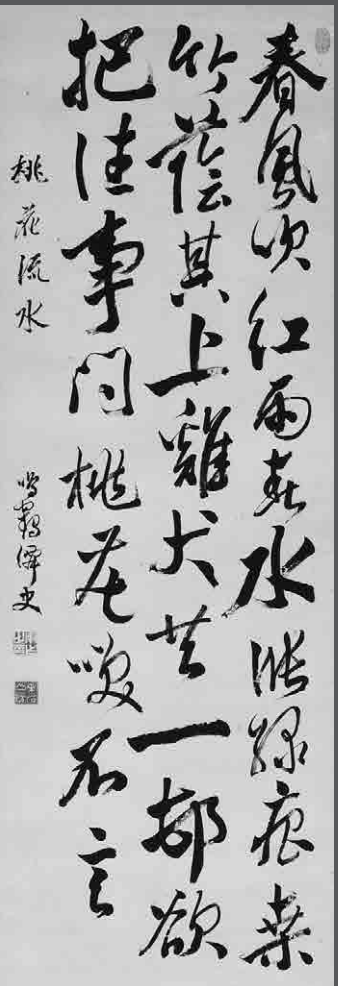 春風吹紅雨春水漲綠痕桑
竹蔭其上雞犬共一邨欲
把往事問桃花咲不言
桃花流水
史